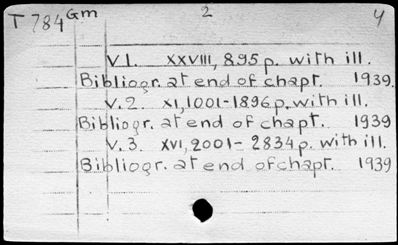 T 784 Gm 2 4
V 1. XXVIII, 895 p. with ill.
Bibliogr. at end of chapt. 1939.
V. 2. XI, 1001-1896 p. with ill.
Bibliogr. at end of chapt. 1939
V. 3. XVI, 2001- 2834 p. with ill.
Bibliogr. at end of chapt. 1939